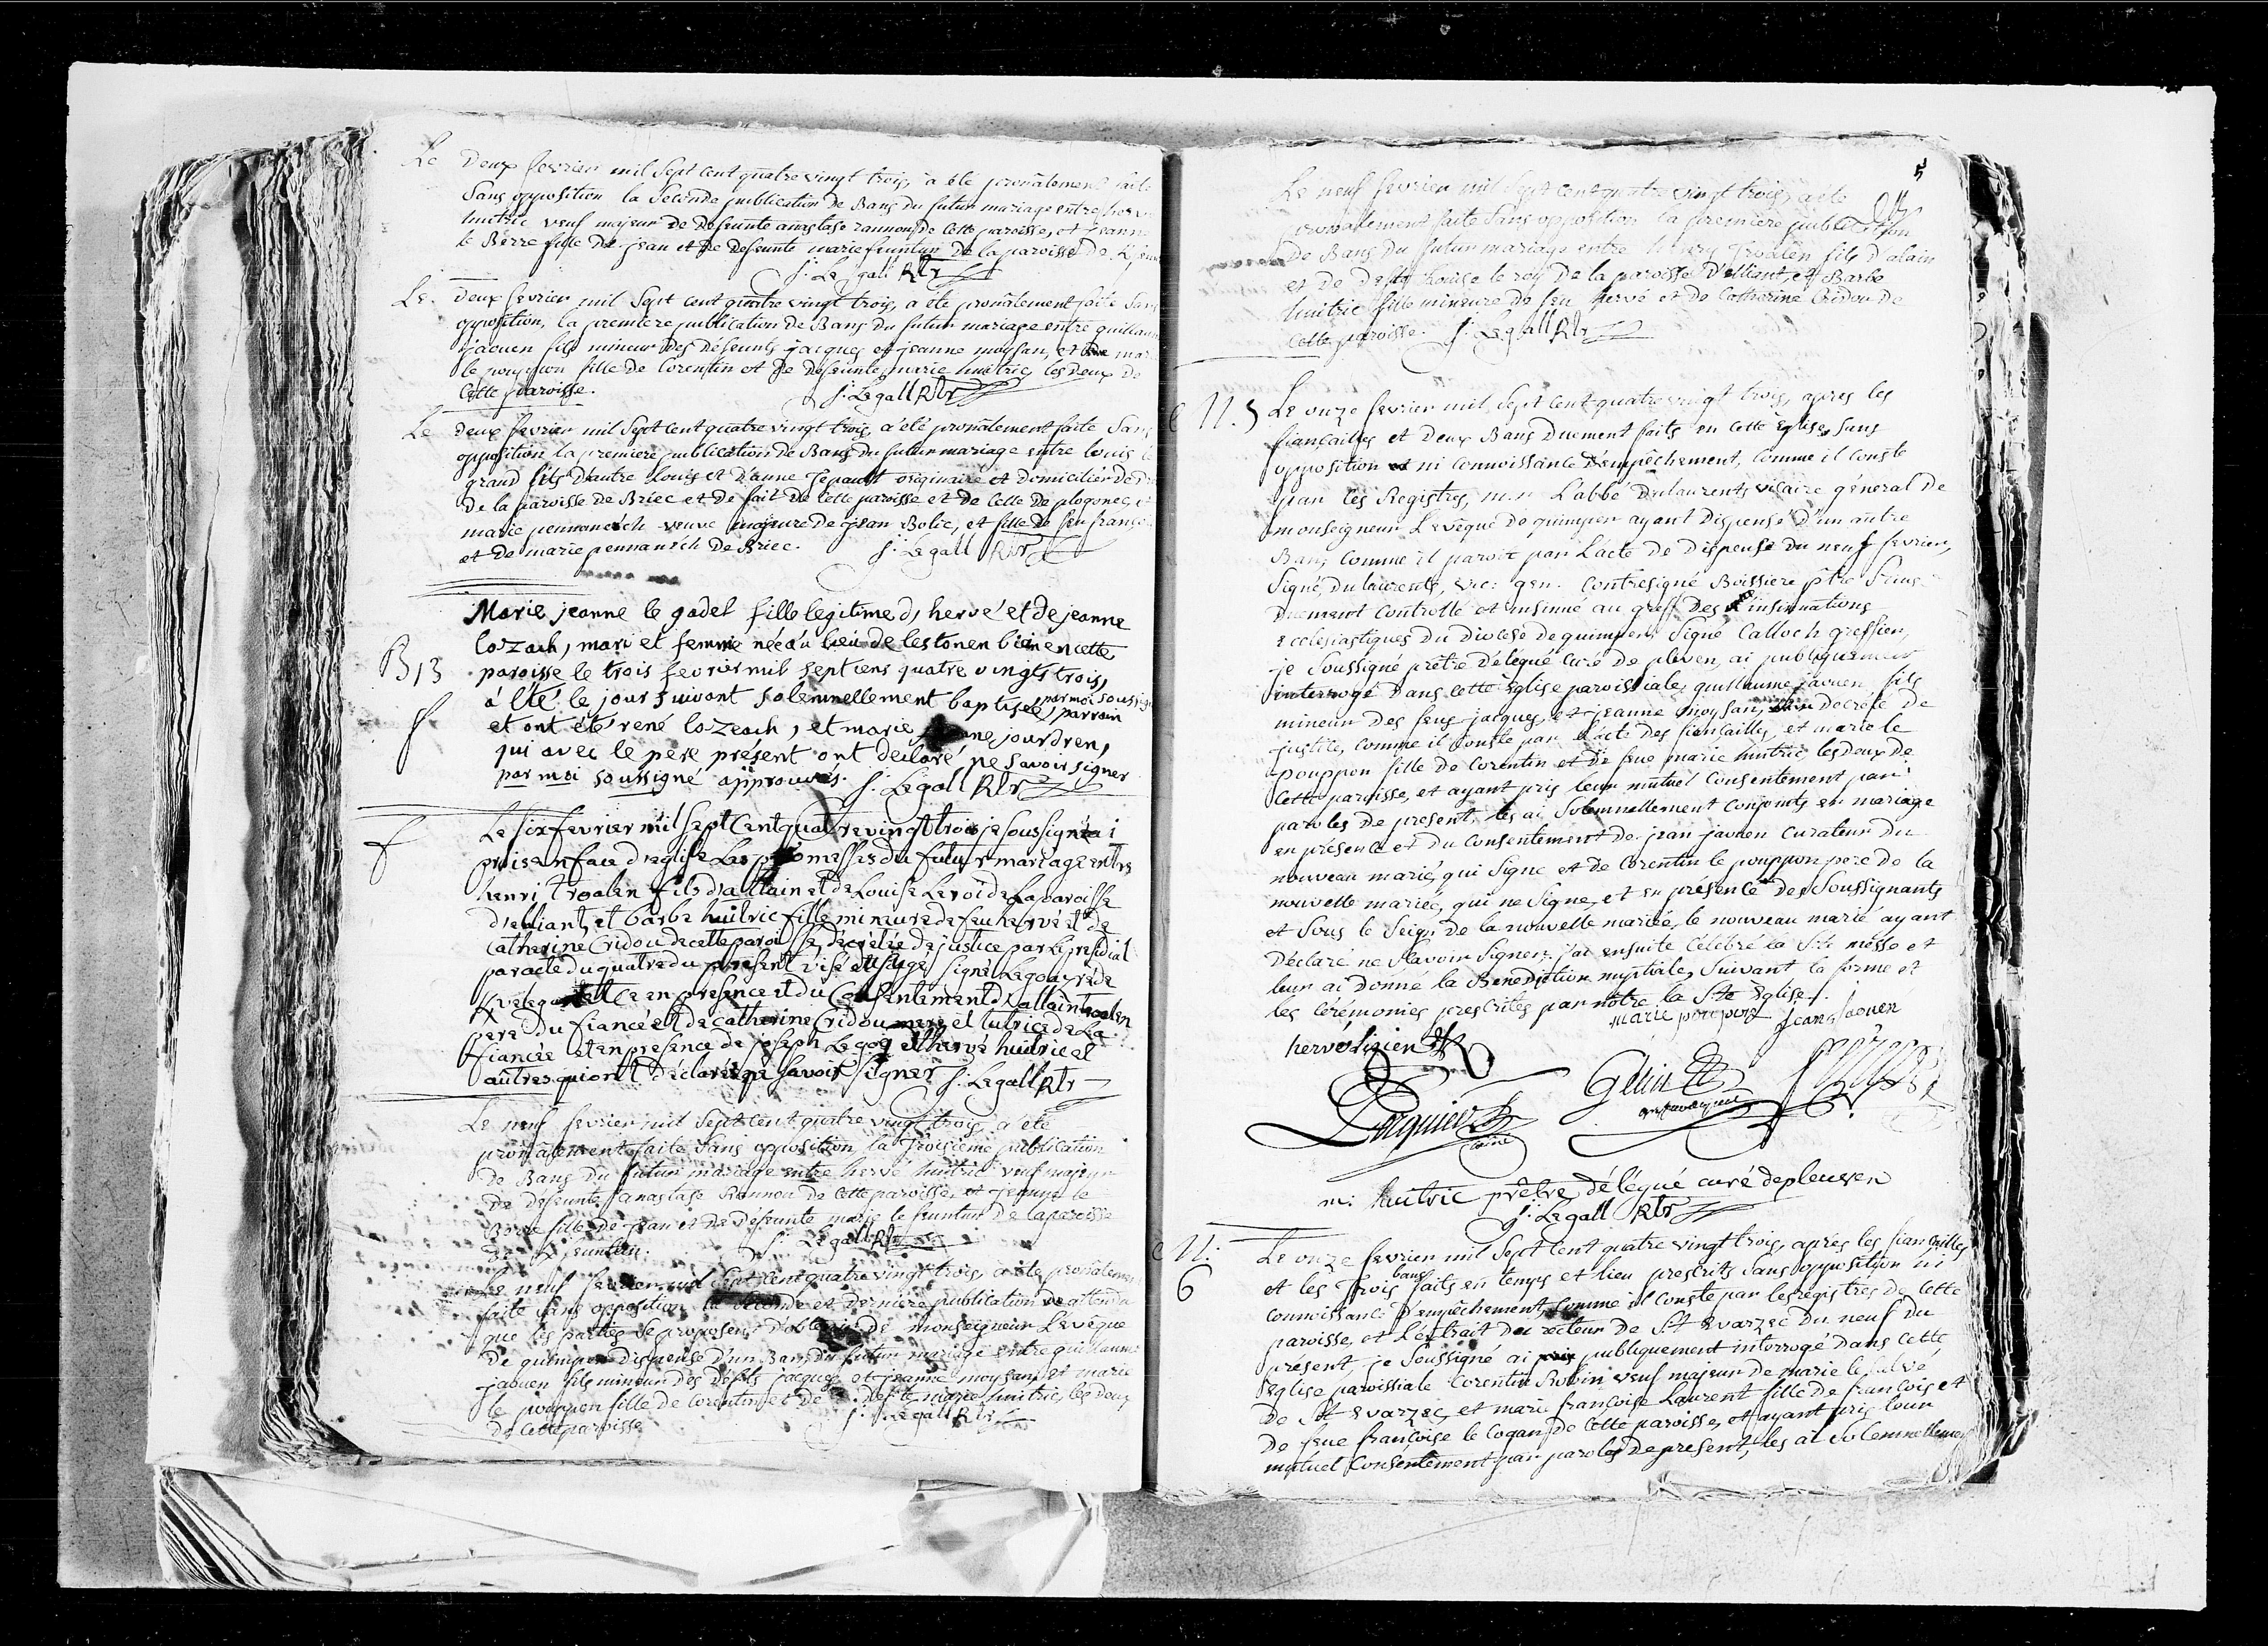 Le deux fevrier mil Sept cent quatre vingt trois, a eté pronâlement faite
Sans opposition la Seconde publication de Bans du futur mariage entre herv
huitric veuf majeur de defeunte anastase rannou de cette paroisse, et jeanne
le Berre fille de jean et de defeunte marie feuntun de la paroisse de
j: Le gall Rtr
Le deux fevrier mil Sept cent quatre vingt trois, a eté pronâlement faite Sans
opposition, la premiere publication de Bans du futur mariage entre guillaum
jaouen fils mineur des défeunts jacques et jeanne moysan, et mar
le pouppon fille de Corentin et de defeunte marie huitric, les deux de
Cette paroisse. j: Le gall Rtr
Le deux fevrier mil Sept cent quatre vingt trois, a été pronâlement faite Sans
opposition la premiere publication de Bans du futur mariage entre louis le
grand fils d'autre louis et d'anne originaire et domicilier de d
de la paroisse de Briec et de fait de cette paroisse et de celle de plogonec, et
marie pennanéch veuve majeure de jean Bolic, et fille de feu françoi
et de marie pennanéch de Briec. j: Le gall Rtr
Marie jeanne le gadel fille legitime d, hervé et de jeanne
lozach, mari et femme née au lieu de lestonen bien en cette
B 13 paroisse le trois fevrier mil sept cens quatre vingts trois,
a été le jour suivant solemnellement baptisée par moi soussig
et ont été rené lozeach, et marie jourdren, parrain
qui avec le pere present ont declaré ne savoir signer
par moi soussigné approuvés. j: Le gall Rtr
f Le six fevrier mil sept Cent quatre vingt trois je soussigné ai
pris en face d'eglise Les promesses du futur mariage entre
henri troalen fils d'allain et de Louise Le roi de La paroisse
d'elliant, et barbe huitric fille mineure de feu hervé et de
Catherine Cridou de cette paroisse, décrétée de justice par Le presidial
par acte du quatre du present visé signé Legoazre de
Kvelegan et Ce en presence et du Consentement d'allain troalen
pere du fiancé et de catherine Cridou mere et tutrice de La
fiancée et en presence de joseph Le goq et hervé huitric et
autres qui ont déclarés ne savoir signer j: Le gall Rtr
Le neuf fevrier mil Sept cent quatre vingt trois, a été
pronâlement faite Sans opposition la Troisieme publication
de Bans du futur mariage entre hervé huitric veuf majeur
de defeunte anastase Rannou de cette paroisse, et jeanne le
Berre fille de jean et de défeunte marie le feuntun de la paroisse
de j: Le gall Rtr
Le neuf fevrier mil Sept cent quatre vingt trois, a eté pronâlement
faite Sans opposition la Seconde et derniere publication attendu
que les parties Se proposent d'obtenir de monseigneur L'evêque
de quimper dispense d'un Ban, du futur mariage entre guillaume
jaouen fils mineur des défts jacques et jeanne moysan et marie
le pouppon fille de Corentin et de defte marie huitric, les deux
de Cette paroisse j: Le gall Rtr
5
Le neuf fevrier mil Sept cent quatre vingt trois, a eté
pronalement faite Sans opposition la premiere publication
de Bans du futur mariage entre henry troalen fils d'alain
et de louise le roy de la paroisse d'elliant, et Barbe
huitric fille mineure de feu hervé et de Catherine Cridou de
Cette paroisse. j: Le gall Rtr
M. 5 Le onze fevrier mil Sept Cent quatre vingt trois, apres les
fiançailles et deux Bans duement faits en cette Eglise, Sans
opposition ni connoissance d'empêchement, comme il conste
par les Registres, L'abbé Dulaurents vicaire géneral de
monseigneur L'evêque de quimper ayant dispensé d'un autre
Ban, comme il paroit par L'acte de dispense du neuf fevrier,
Signé, Dulaurents, vic: gen. Contresigné Boissiere ptre
Duement Controllé et insinué au greff des insinuations
ecclésiastiques du diocese de quimper Signé Calloch greffier,
je Soussigné prêtre délégué curé de pleven, ai publiquement
interrogé dans cette Eglise paroissiale, guillaume jaouen fils
mineur des feus jacques, et jeanne moysan, decrété de
justice, comme il conste par L'acte des fiançailles, et marie le
pouppon fille de Corentin et de feue marie huitric les deux de
Cette paroisse, et ayant pris leur mutuel Consentement par
paroles de present, les ai Solemnellement conjoints en mariage
en présence et du consentement de jean jaouen curateur du
nouveau marié, qui Signe et de Corentin le pouppon pere de la
nouvelle mariée, qui ne Signe, et en présence des Soussignants
et Sous le Seign de la nouvelle mariée, le nouveau marié ayant
declaré ne Sçavoir Signer. j'ai ensuite célébré la Ste messe et
leur ai donné la Bénédiction nuptiale, Suivant la forme et
les cérémonies prescrites par notre la Ste Eglise.
marie poupon jean jaouen
herve lizien
Gelin
m: huitric prêtre délégué curé de pleuven
j: Le gall Rtr
M: 6 Le onze fevrier mil Sept Cent quatre vingt trois, apres les fiançailles
et les Trois bans faits en temps et lieu prescrits Sans opposition ni
connoissance d'empêchement, comme il conste par les registres de cette
paroisse, et L'extrait du recteur de St Evarzec du neuf du
present, je Soussigné ai publiquement interrogé dans cette
Eglise paroissiale Corentin Robin veuf majeur de marie le
de St Evarzec, et marie françoise Laurent fille de françois et
de feue françoise le Cogan de cette paroisse, et ayant pris leur
mutuel Consentement par paroles de present, les ai Solemnellement